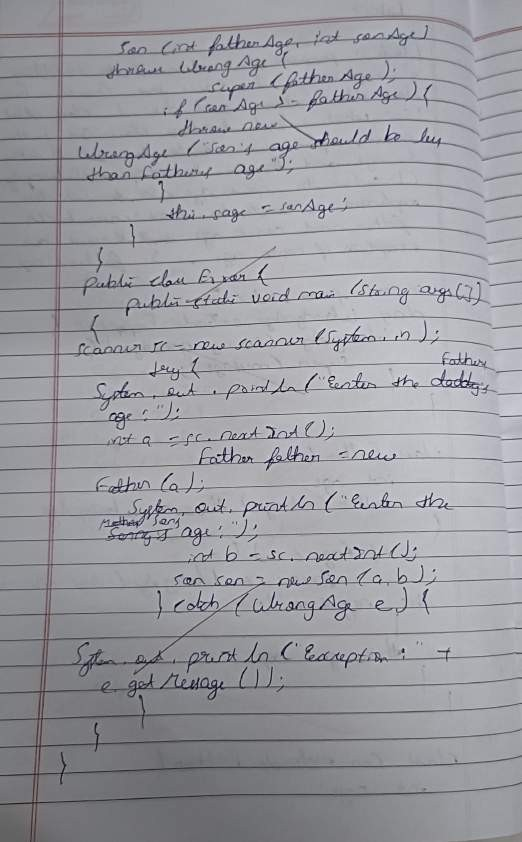 Son (int fatherAge, int sonAge)
throws WrongAge {
super (fatherAge);
if (sonAge >= fatherAge) {
throw new
WrongAge ("Son's age should be less
than Fathers age");
}
this.sage = sonAge;
}
}
Public class Error {
public static void main (String args[])
{
Scanner sc = new scanner (System.in);
try {
System.out.println ("Eenter the Father
age : ");
int a = sc.nextInt();
Father father = new
Father (a);
System.out.println ("Eenter the
sons age : ");
int b = sc.nextInt();
son son = new Son (a, b);
} catch (WrongAge e) {
System.out.println ("Exception : " +
e.getMessage());
}
}
}